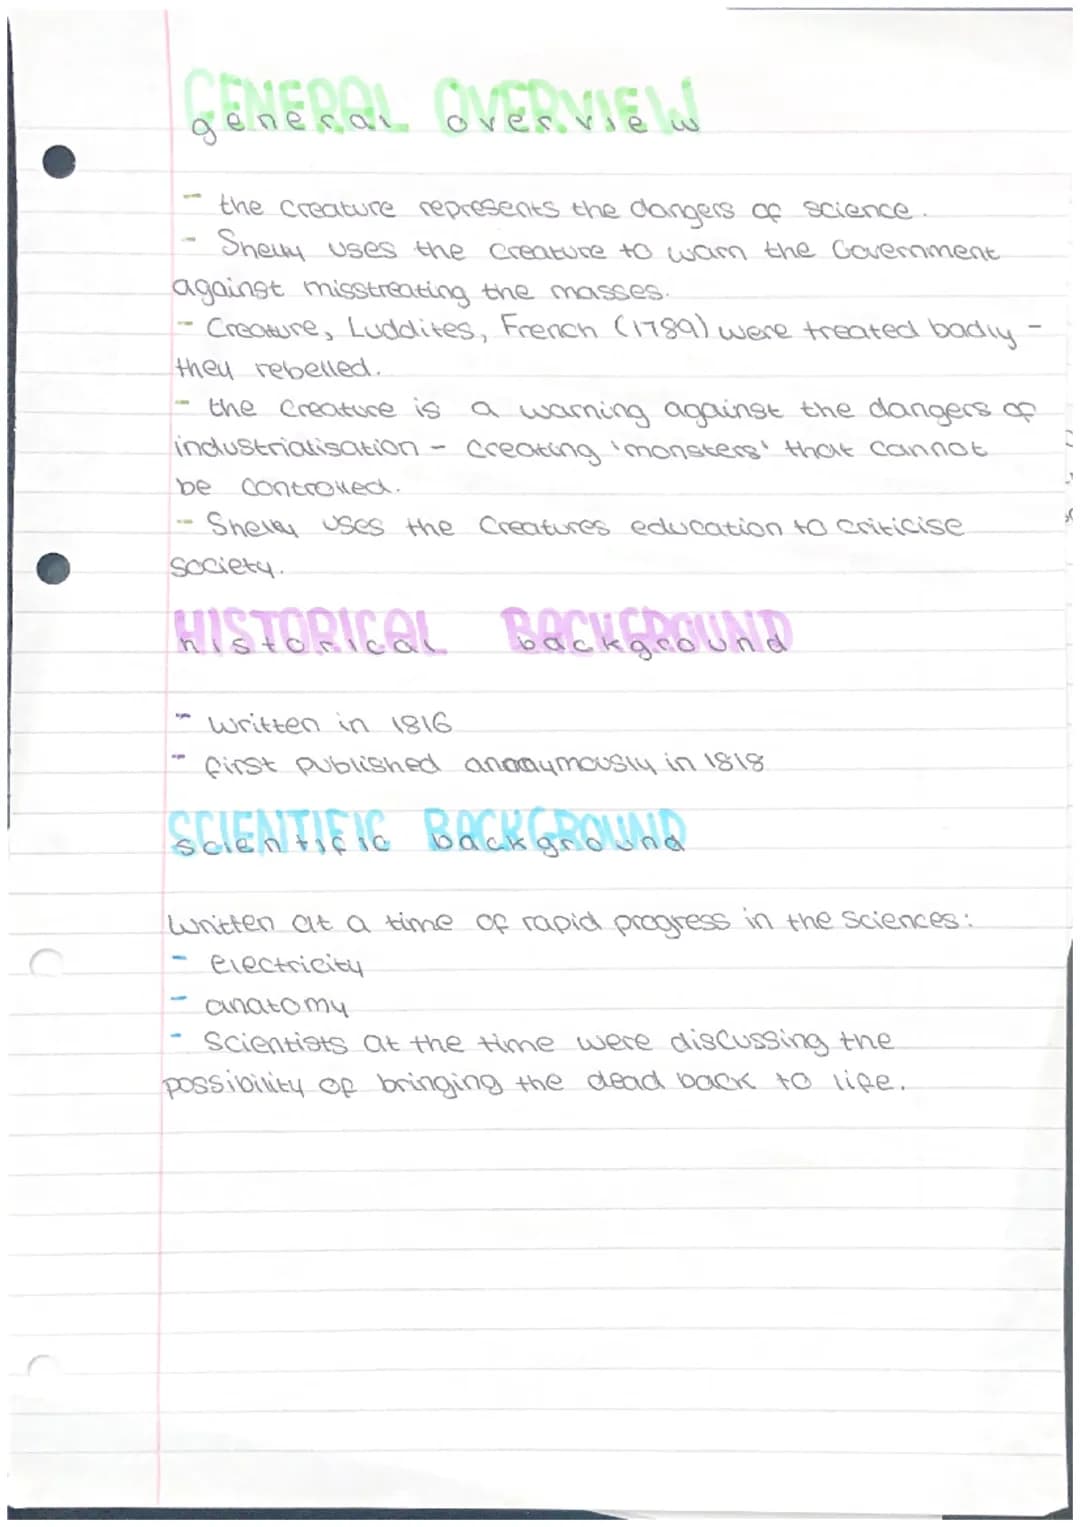 GENERAL OVERVIEW
general overview
- the creature represents the dangers of science.
- Shelly uses the creature to warn the Government
against misstreating the masses.
- Creature, Luddites, French (1789) were treated badly -
they rebelled.
- the creature is a warning against the dangers of
industrialisation - creating 'monsters' that cannot
be controlled.
- Shelly uses the Creatures education to criticise
society.
HISTORICAL BACKGROUND
historical background
- written in 1816
- first published anonymously in 1818
SCIENTIFIC BACKGROUND
scientific background
Written at a time of rapid progress in the sciences:
- electricity
- anatomy
- Scientists at the time were discussing the
possibility of bringing the dead back to life.